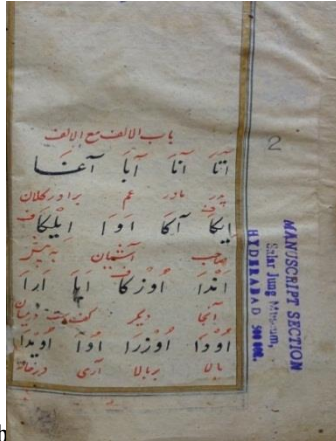 باب الالف مع الالف
آتَا آنَا آبَا آغَا
پدر مادر عم برادر کلان
ایکَا آکَا اَوَا ایلیکَا
آشیان
آندَا اُوزکَا اَیَا آرَا
آنجا دیگر کف دست درمیان
اُوودَا اُوزرَا اُوَا اُویدَا
بالا بربالا آری درخانه
2
MANUSCRIPT SECTION
Salar Jung Museum,
HYDERABAD 500 002.